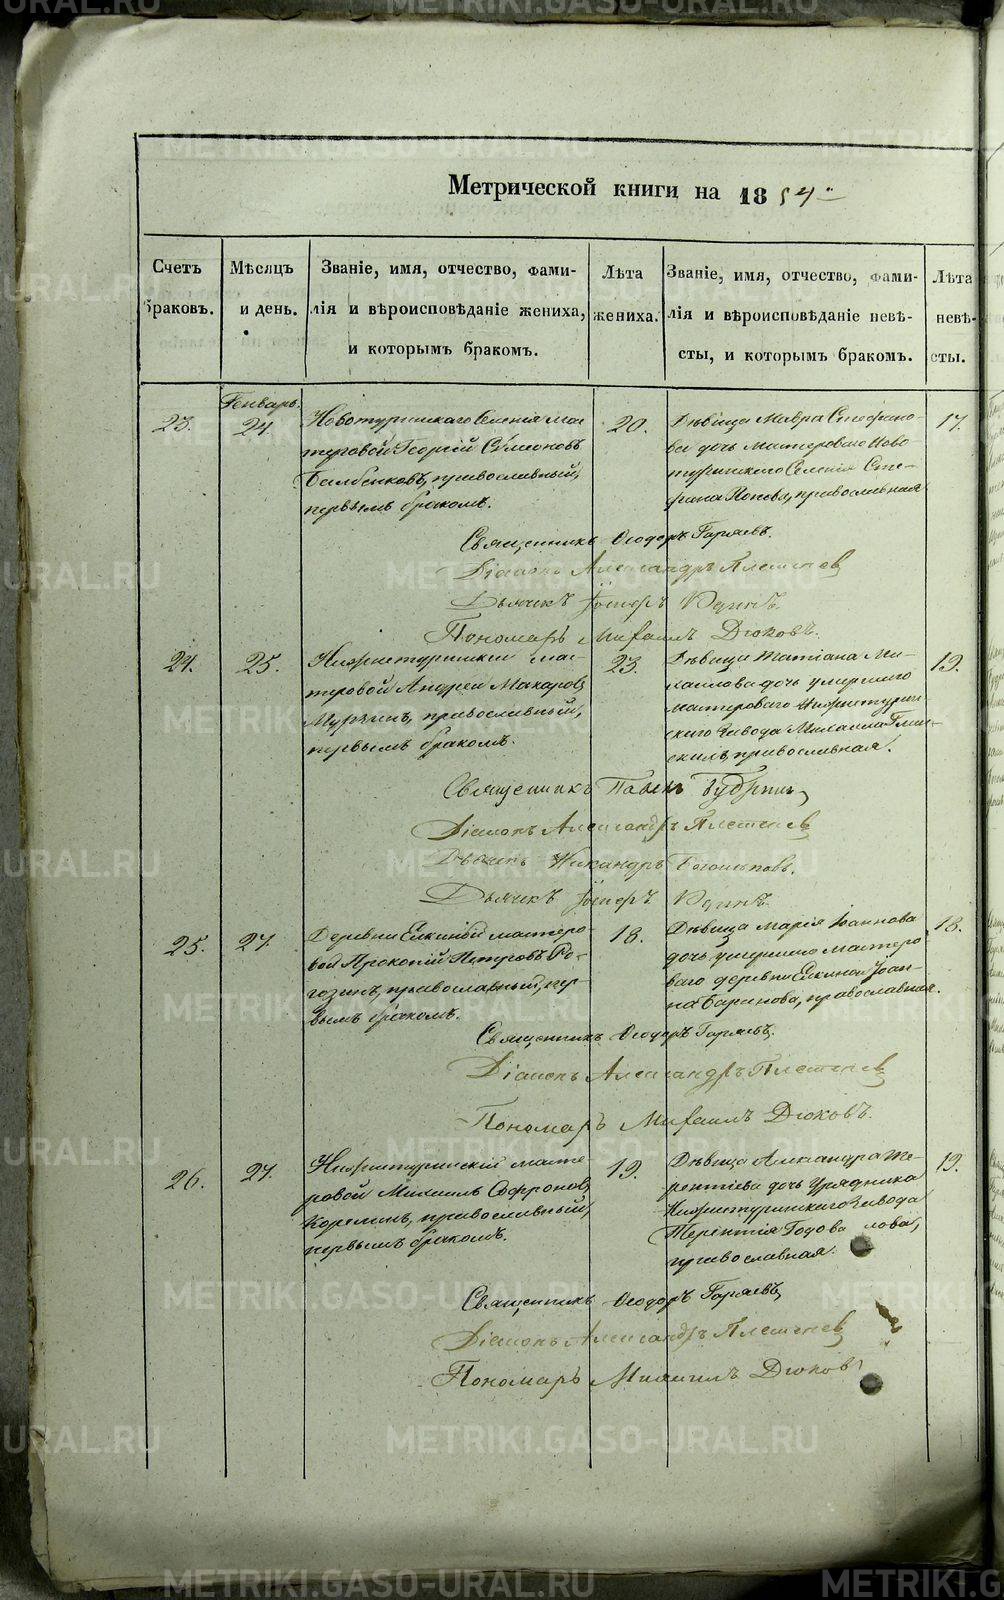 Метрической книги на 1854
Счетъ браковъ.
Мѣсяцъ и день.
Званіе, имя, отчество, фами-
лія и вѣроисповѣданіе жениха,
и которымъ бракомъ.
Лѣта жениха.
Званіе, имя, отчество, фами-
лія и вѣроисповѣданіе невѣ-
сты, и которымъ бракомъ.
Лѣта невѣ-
сты.
Генварь.
23.
24.
Новотуринскаго Селенія мас-
теровой Георгій Сѵмеоновъ
православный,
первымъ бракомъ.
20.
Дѣвица Мавра Стефано-
ва дочь мастероваго Ново-
туринскаго Селенія Сте-
фана Попова, православная
17.
Священникъ Ѳеодоръ Гаряевъ.
Діаконъ Александръ Плетенев
Дьячекъ Удинъ
Пономарь Михаилъ Дюковъ.
24.
25.
Нижнетуринскій мас-
теровой Андрей Макаровъ
Мурзинъ, православный,
первымъ бракомъ.
23.
Дѣвица Татіана Ми-
хаилова дочь умершаго
мастероваго Нижнетурин-
скаго Завода Михаила
православная.
19.
Священникъ Павелъ
Діаконъ Александръ Плетенев
Дьячекъ Никандръ Боголѣповъ.
Дьячекъ Удинъ
25.
27.
Деревни Елкиной мастеро-
вой Прокопій Петровъ Ро-
гозинъ, православный, пер-
вымъ бракомъ.
18.
Дѣвица Марія Іоаннова
дочь умершаго мастеро-
ваго деревни Елкиной Іоан-
на Баринова, православная.
18.
Священникъ Ѳеодоръ Гаряевъ.
Діаконъ Александръ Плетенев
Пономарь Михаилъ Дюковъ.
26.
27.
Нижнетуринскій масте-
ровой Михаилъ Софроновъ
Корелинъ, православный,
первымъ бракомъ.
19.
Дѣвица Александра Те-
рентіева дочь Урядника
Нижнетуринскаго Завода
Терентія Годова лова,
православная.
19.
Священникъ Ѳеодоръ Гаряевъ
Діаконъ Александръ Плетенев
Пономарь Михаилъ Дюковъ
METRIKI.GASO-URAL.RU